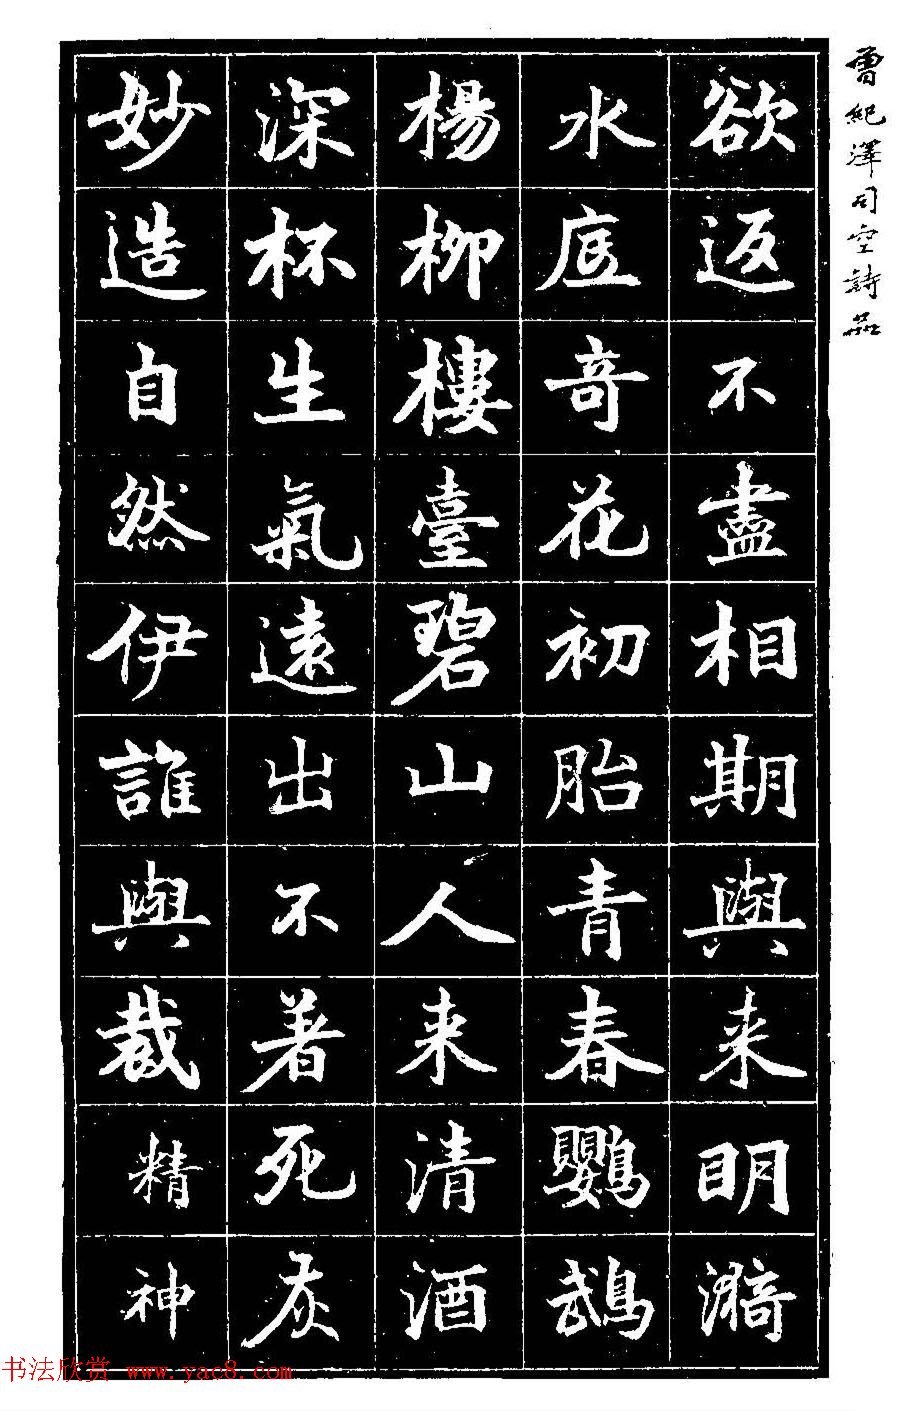 曾紀澤司空詩品
欲返不盡相期與来明漪
水底奇花初胎青春鸚鵡
楊柳樓臺碧山人来清酒
深杯生氣遠出不著死灰
妙造自然伊誰與裁精神
书法欣赏 www.yac8.com